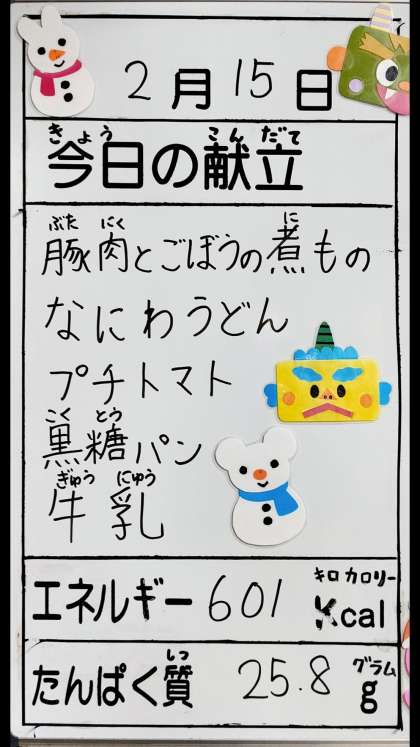 2月15日
きょう こんだて
今日の献立
ぶた にく に
豚肉とごぼうの煮もの
なにわうどん
プチトマト
こく とう
黒糖パン
ぎゅう にゅう
牛乳
キロ カロリー
エネルギー 601 Kcal
しつ グラム
たんぱく質 25.8 g